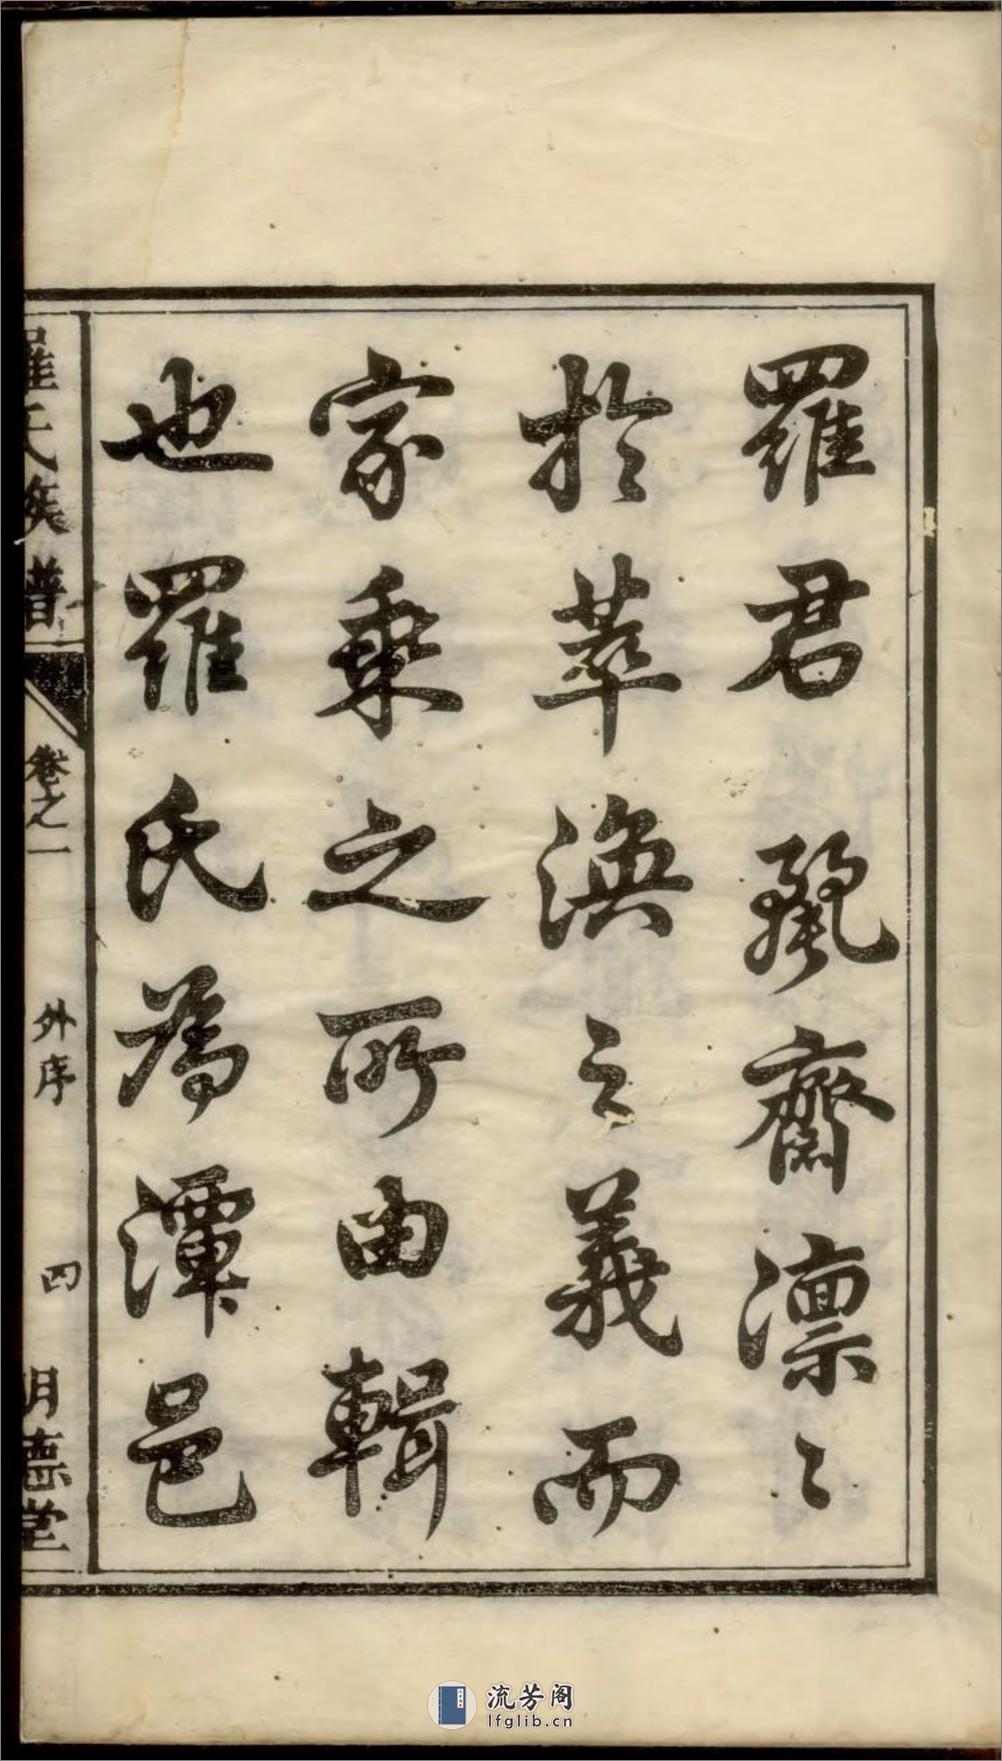 羅君齋凛〻
於萃渙之義而
家乘之所由輯
也羅氏為潭邑
羅氏族譜 卷之一 外序 四 明德堂
流芳阁
lfglib.cn